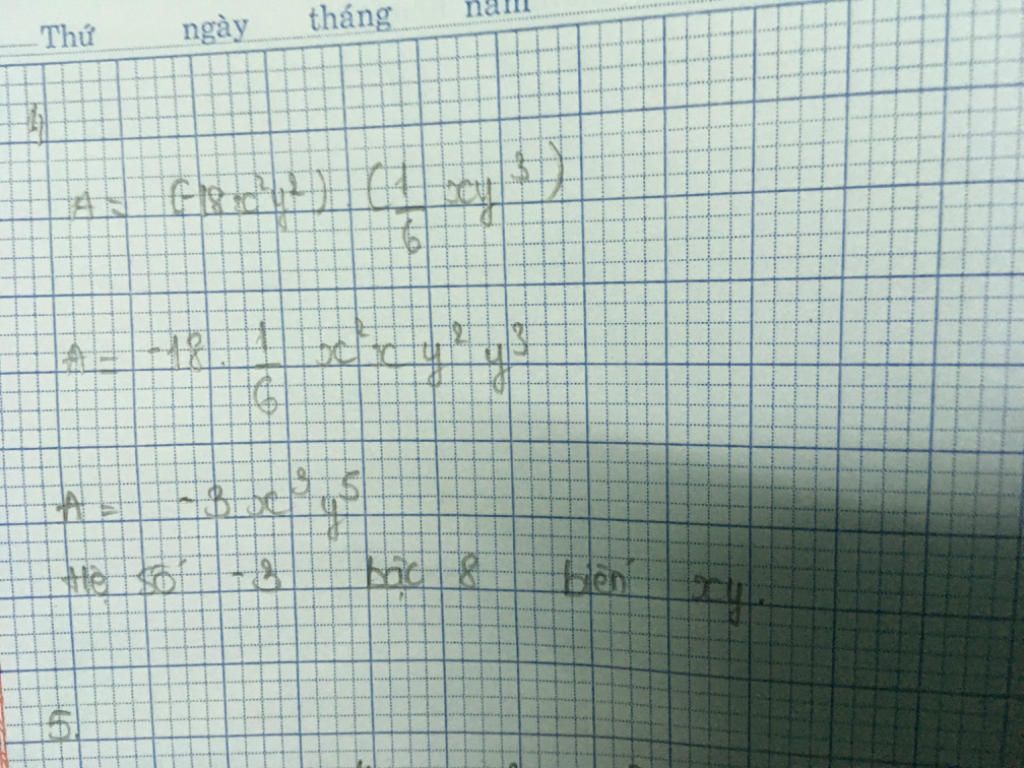 Thứ ngày tháng năm
4)
A = (-18x²y²) . (1/6 xy³)
A = -18 . 1/6 x²x y² y³
A = -3x³y⁵
Hệ số -3 bậc 8 biến xy.
5.